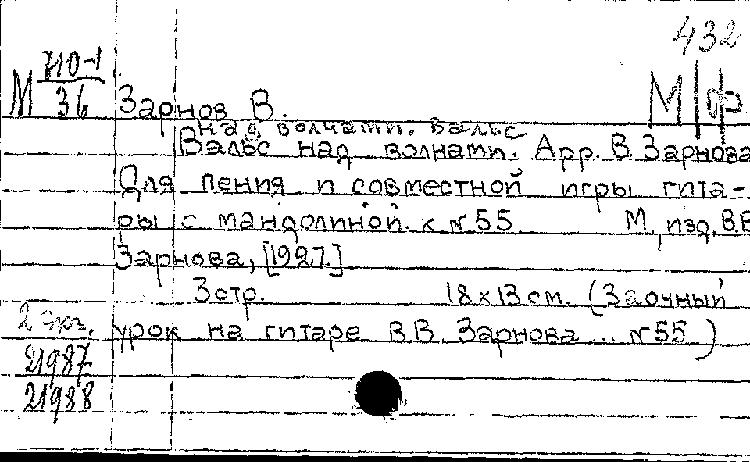 432
М 710-1/36
М/ф
Зарнов В.
над волнами. Вальс
Вальс над волнами. Арр. В. Зарнова
Для пения и совместной игры гита-
ры с мандолиной. к №55 М., изд. В.В.
Зарнова, [1927.]
3 стр. 18х13 см. (Заочный
2 экз. урок на гитаре В.В. Зарнова... №55)
21987
21988